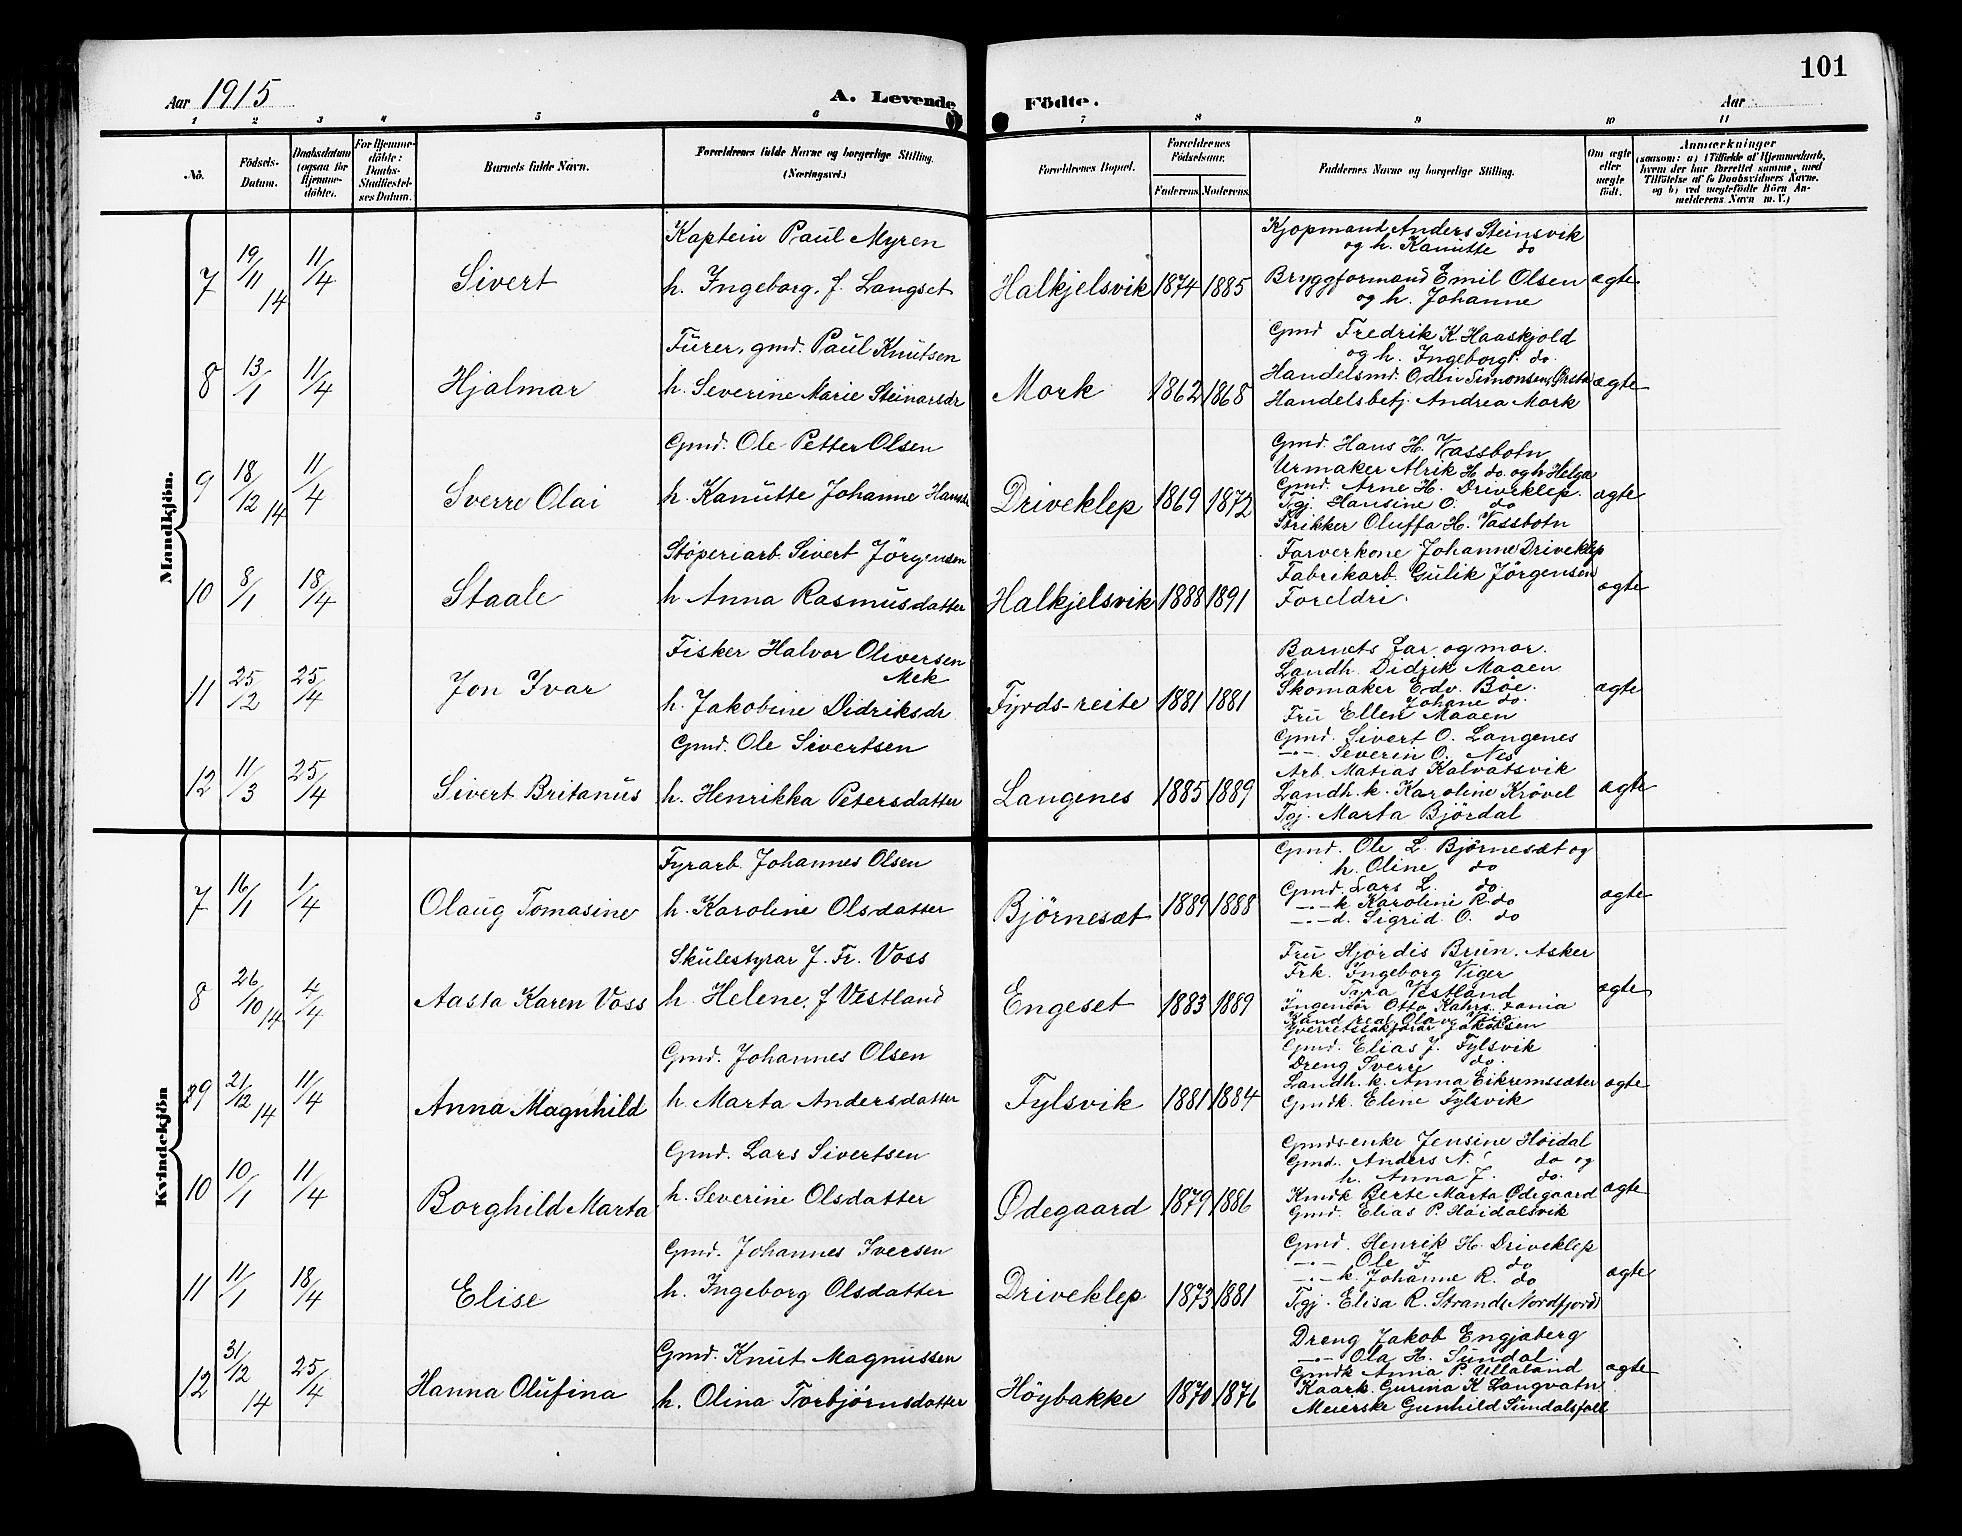 101
Aar 1915 A. Levende Födte. Aar
1 2 3 4 5 6 7 8 9 10 11
No. Födsels-Datum. Daabsdatum (ogsaa for Hjemme-döbte). For Hjemme-döbte: Daabs-Stadfæstel-ses Datum. Barnets fulde Navn. Forældrenes fulde Navne og borgerlige Stilling. (Næringsvei.) Forældrenes Bopæl. Forældrenes Födselsaar. Faderens. Moderens. Faddernes Navne og borgerlige Stilling. Om ægte eller uægte födt. Anmærkninger (saasom: a) i Tilfælde af Hjemmedaab, hvem der har forrettet samme, med Tilföielse af to Daabsvidners Navne, og b) ved uægtefödte Börn An-melderens Navn m. V.)
Mandkjön.
7 19/11 14 11/4 Sivert Kaptein Paul Myren
h. Ingeborg, f. Langset Halkjelsvik 1874 1885 ægte
Kjøpmand Anders Steinsvik
og h. Kanutte do
Bryggformand Emil Olsen
og h. Johanne
8 13/1 11/4 Hjalmar Furer, gmd. Paul Knutsen
h. Severine Marie Steinarsdr Mork 1862 1868 ægte
Gmd Fredrik K. Haaskjold
og h. Ingeborg P. do.
Handelsmd. Odin Simonsen, Ørsta
Handelsbetj. Andrea Mork
9 18/12 14 11/4 Sverre Olai Gmd. Ole Petter Olsen
h. Kanutte Johanne Hansdr Driveklep 1869 1872 ægte
Gmd. Hans H. Vassbotn
Urmaker Alrik H. do. og h Helga
Gmd. Arne H. Driveklep.
Tgj. Hansine O. do
Strikker Oluffa H. Vassbotn
10 8/1 18/4 Staale Støperiarb. Sivert Jörgensen
h Anna Rasmusdatter Halkjelsvik 1888 1891 ægte
Farverkone Johanne Driveklep
Fabrikarb. Gulik Jörgensen
Foreldri.
11 25/12 25/4 Jon Ivar Fisker Halvor Oliversen
Mek
h. Jakobine Didriksdr Fyrds-reite 1881 1881 ægte
Barnets far og mor.
Landh. Didrik Maaen
Skomaker Edv. Böe.
Johane do.
Fru Ellen Maaen
12 11/3 25/4 Sivert Britanus Gmd. Ole Sivertsen
h. Henrikka Petersdatter Langenes 1885 1889 ægte
Gmd. Sivert O. Langenes
—"— Severin O. Nes
Arb. Matias Kalvatsvik
Landh. k. Karoline Krövel
Tgj. Marta Björdal
Kvindekjön
7 16/1 1/4 Olaug Tomasine Fyrarb. Johannes Olsen
h. Karoline Olsdatter Björnesæt 1889 1888 ægte
Gmd. Ole L. Björnesæt og
h. Oline do
Gmd. Lars L. do.
—"—k Karoline R. do
—"—d. Sigrid. O. do
8 26/10 14 4/4 Aasta Karen Voss Skulestyrar J. Fr. Voss
h. Helene, f Vestland Engeset 1883 1889 ægte
Fru Hjördis Brun. Asker
Frk. Ingeborg Viger
Tyra Vestland
Ingeniör Otto Kahrs,
Kand real Olav
Yverretssakförar Jakobsen
9 21/12 14 11/4 Anna Magnhild Gmd. Johannes Olsen
h. Marta Andersdatter Fylsvik 1881 1884 ægte
Gmd. Elias J. Fylsvik
Dreng Sverre do.
Landh. k. Anna Eikremssæter
Gmdk. Eline Fylsvik
10 10/1 11/4 Borghild Marta Gmd. Lars Sivertsen
h. Severine Olsdatter Ødegaard 1879 1886 ægte
Gmds-enke Jensine Höidal
Gmd. Anders N. do og
h. Anna J. do.
Kmdk Berte Marta Ödegaard
Gmd. Elias P. Höidalsvik
11 11/1 18/4 Elise Gmd. Johannes Iversen
h. Ingeborg Olsdatter Driveklep 1873 1881 ægte
Gmd. Henrik H. Driveklep
—"— Ole J do
—"—k. Johanne R. do
Tgj. Elisa R. Strand (Nordfjord)
12 31/12 14 25/4 Hanna Olufina Gmd. Knut Magnussen
h. Olina Torbjörnsdatter Höybakke 1870 1871 ægte
Dreng Jakob Engjaberg
—"— Ola H. Sundal.
Gmdk Anna P. Ullaland
Kaark. Gurina K Langvatn
Meierske Gunhild Sundalsfoll